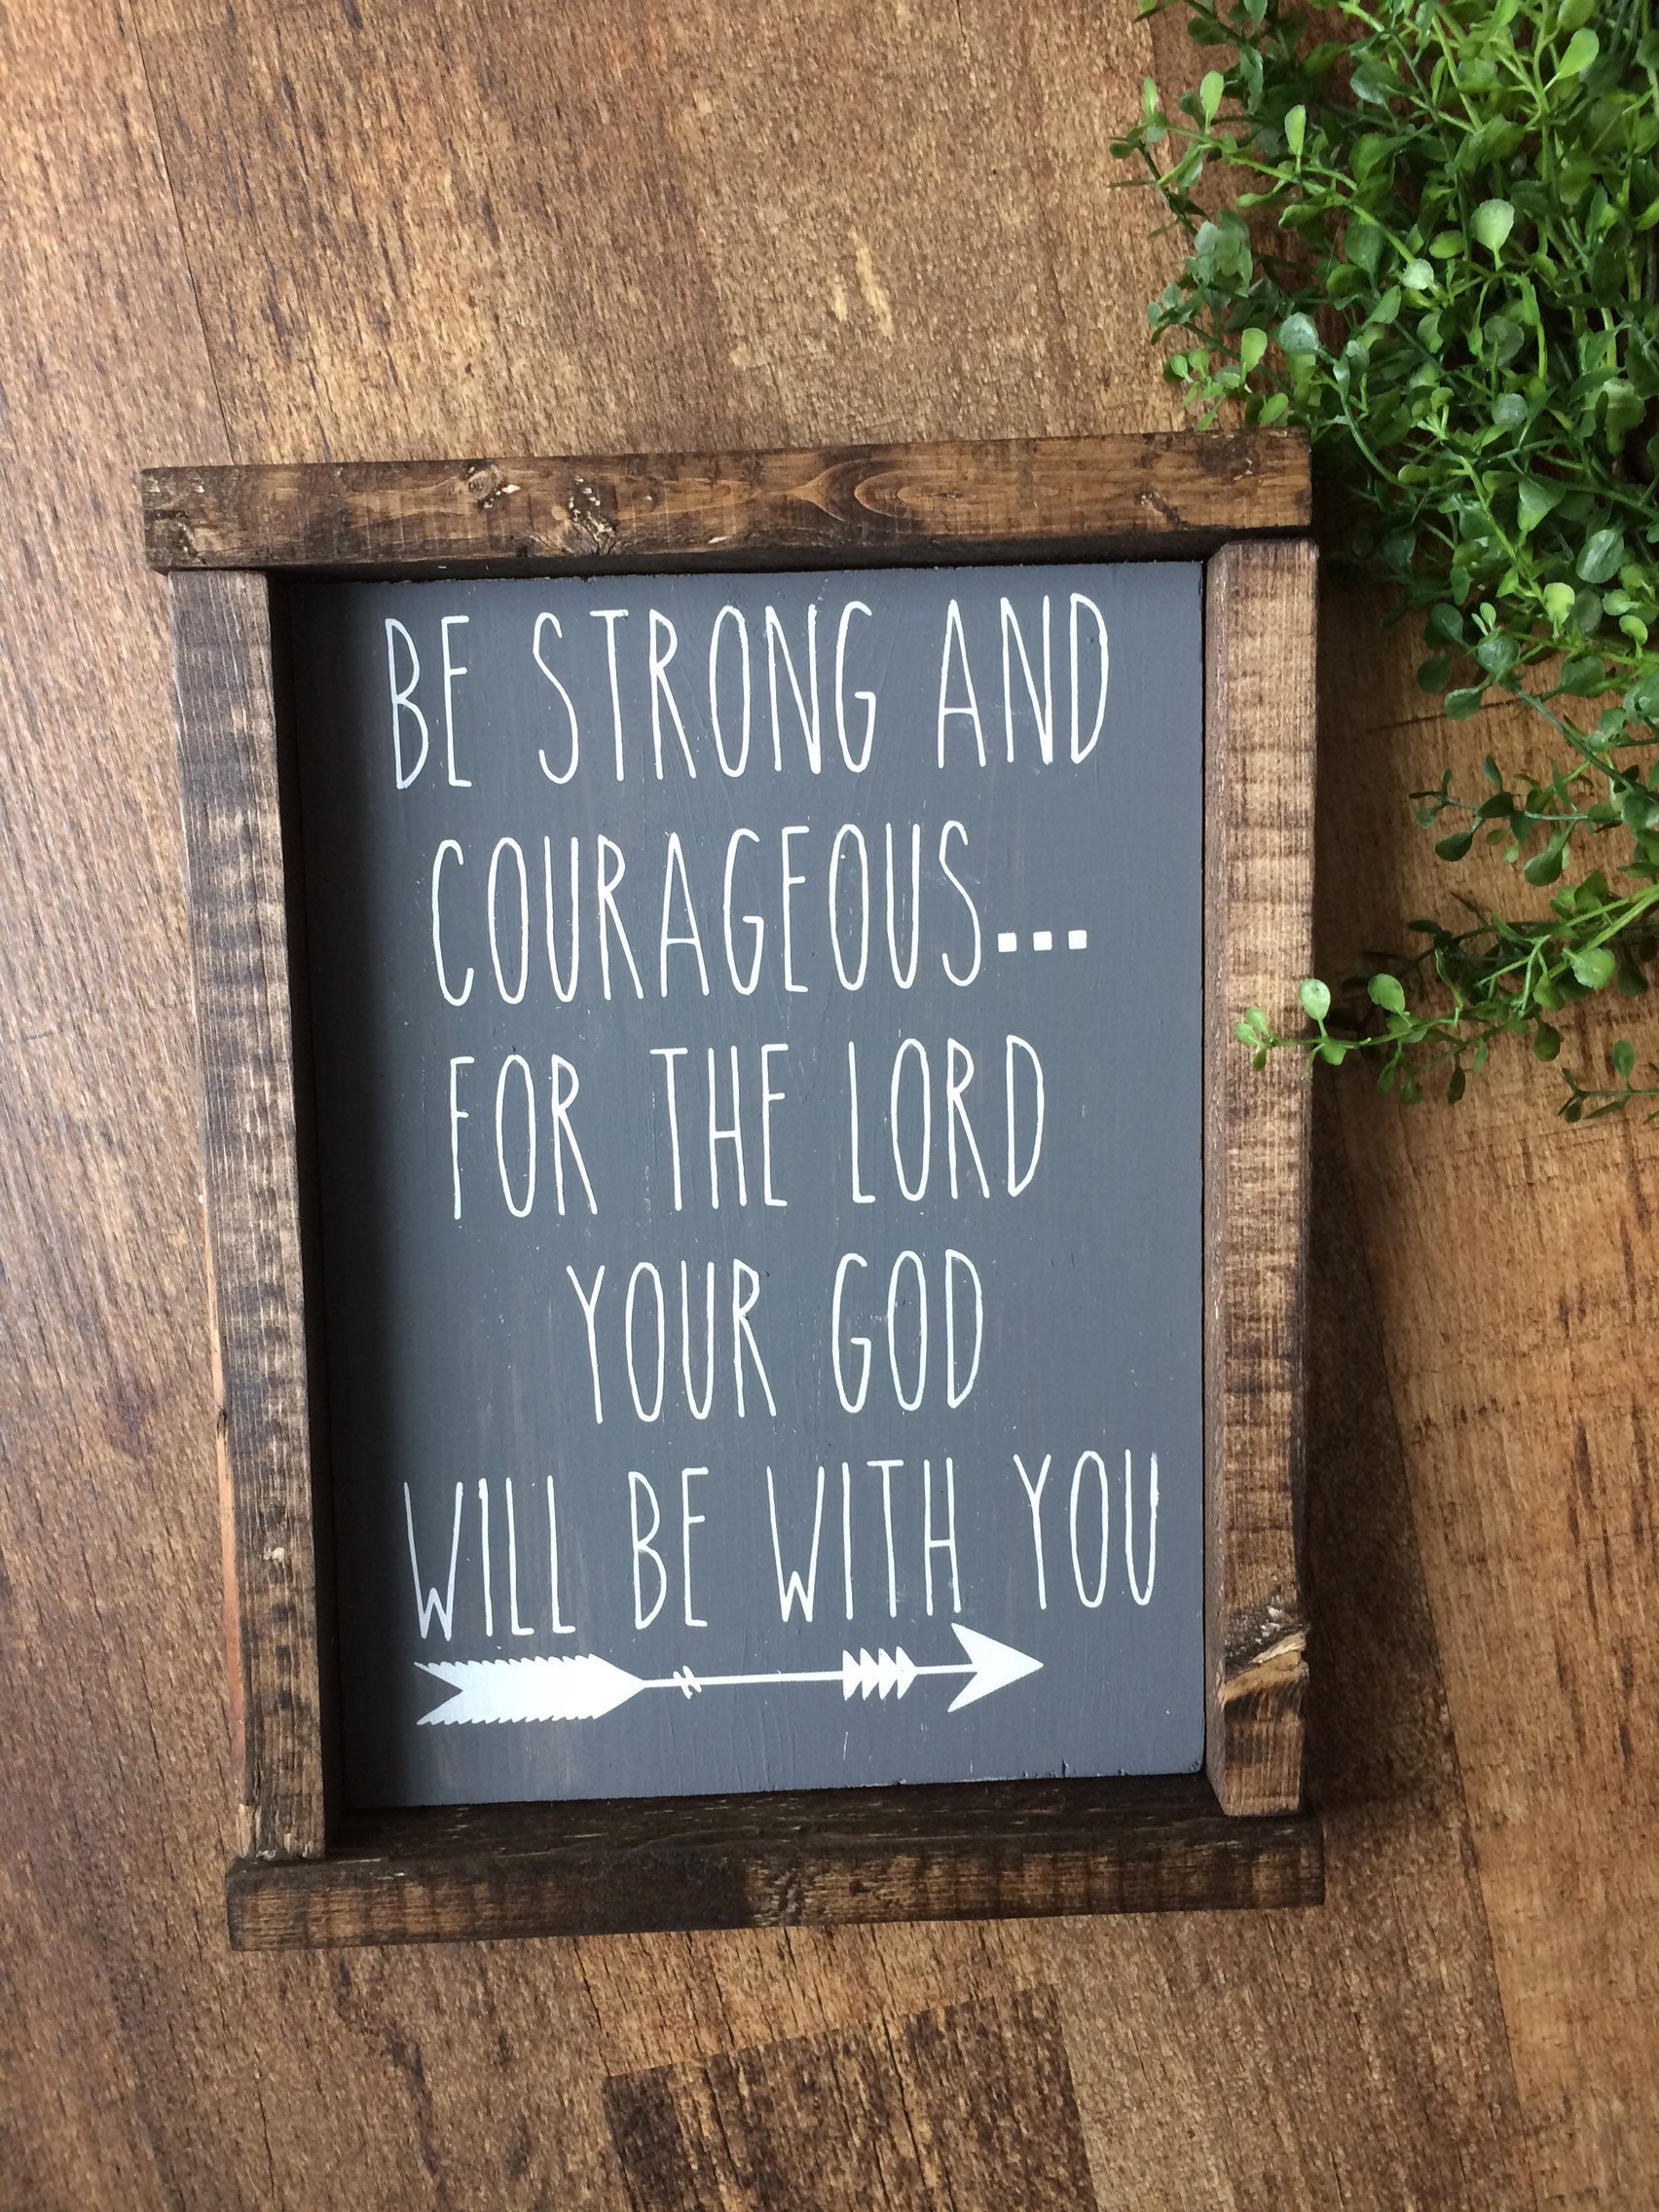 BE STRONG AND
COURAGEOUS...
FOR THE LORD
YOUR GOD
WILL BE WITH YOU